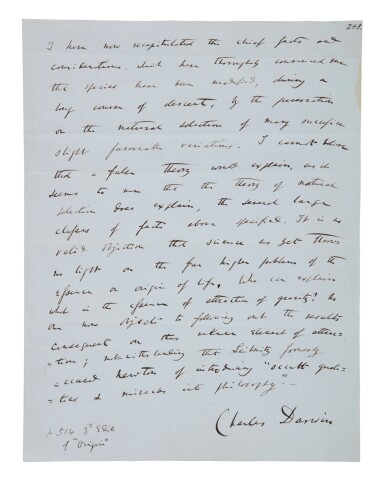 248.
I have now recapitulated the chief facts and
considerations, which have thoroughly convinced me
that species have been modified, during a
long course of descent, by the preservation
or the natural selection of many successive
slight favourable variations. I cannot believe
that a false theory would explain, as it
seems to me that the theory of natural
selection does explain, the several large
classes of facts above specified. It is no
valid objection that science as yet throws
no light on the far higher problem of the
essence or origin of life. Who can explain
what is the essence of attraction of gravity? No
one now objects to following out the results
consequent on this unknown element of attrac-
=tion; notwithstanding that Leibnitz formerly
accused Newton of introducing "occult quali-
=ties & miracles into philosophy."—
Charles Darwin
p. 514 3d Edit
of "Origin"